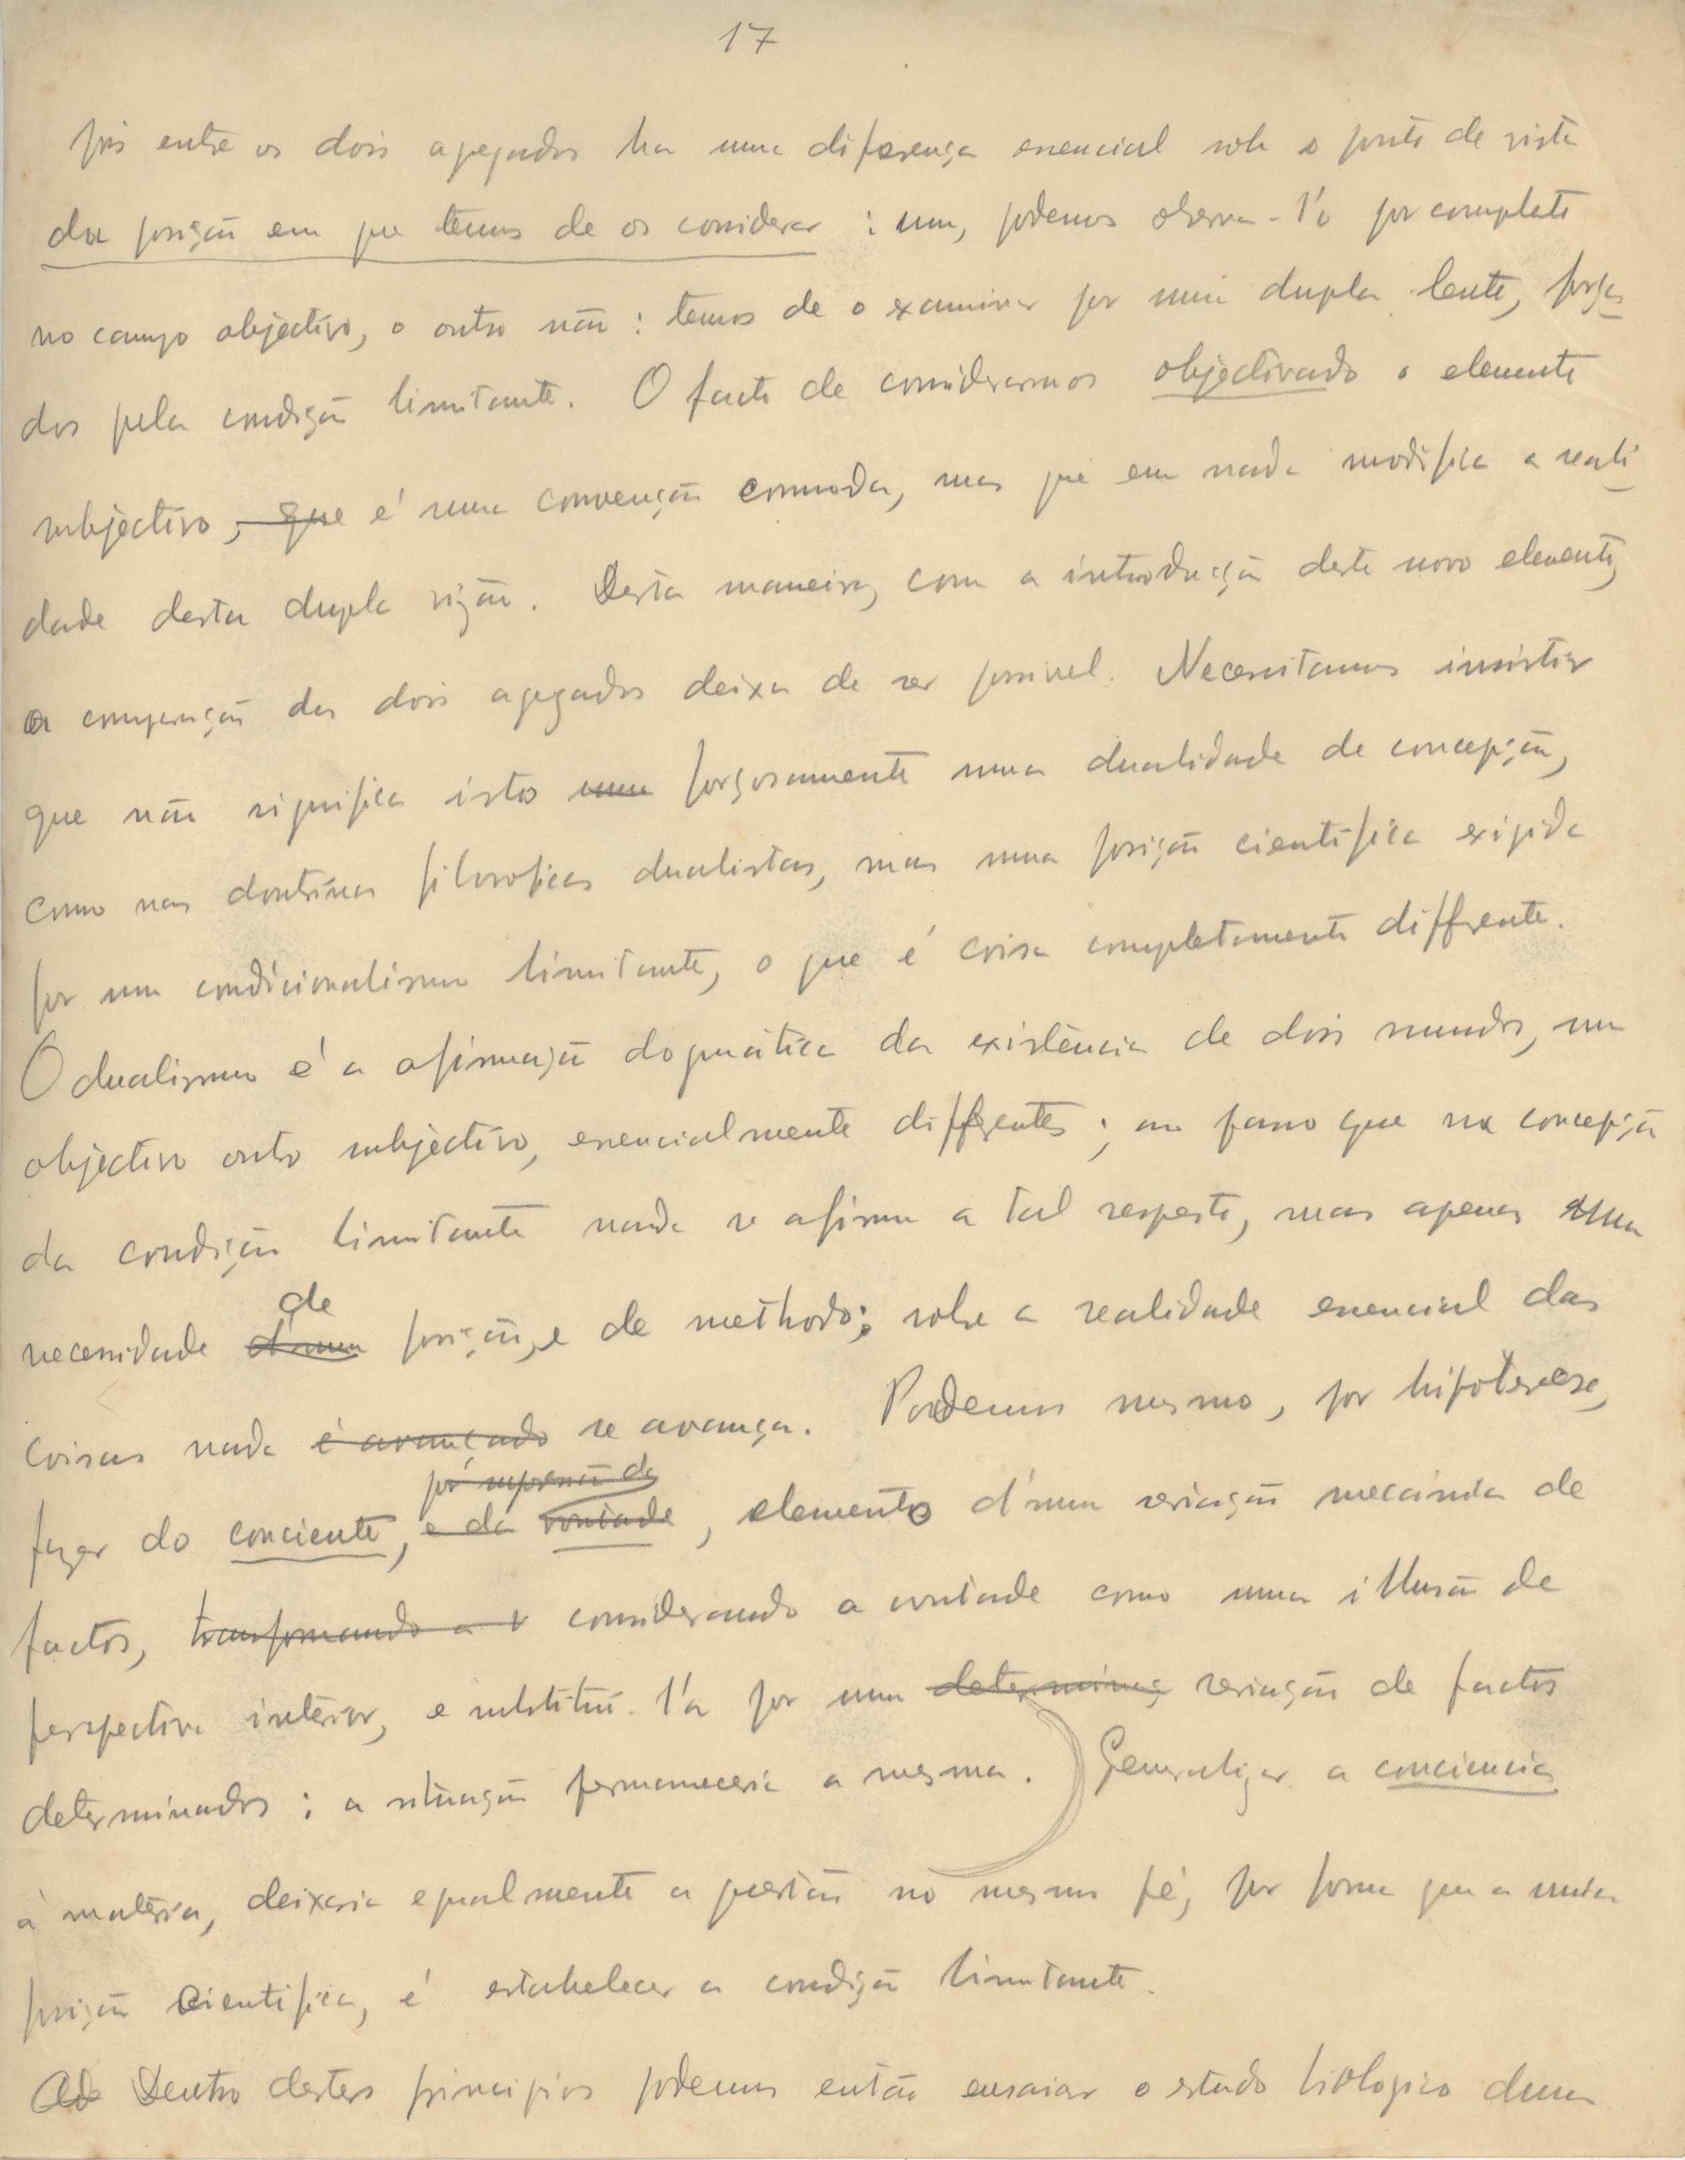 17
pois entre os dois agregados ha uma diferença essencial sob o ponto de vista
da posição em que temos de os considerar : um, podemos observa-l'o por completo
no campo objectivo, o outro não : temos de o examinar por uma dupla lente, força-
dos pela condição limitante. O facto de considerarmos objectivado o elemento
subjectivo, que é uma convenção commoda, mas que em nada modifica a reali-
dade desta dupla visão. Desta maneira, com a introdução deste novo elemento,
a comparação dos dois agregados deixa de ser possivel. Necessitamos insistir
que não significa isto uma forçosamente uma dualidade de concepção,
como nas doutrinas filosoficas dualistas, mas uma posição cientifica exigida
por um condicionalismo limitante, o que é coisa completamente diffrente.
O dualismo é a afirmação dogmática da existência de dois mundos, um
objectivo outro subjectivo, essencialmente diffrentes ; ao passo que na concepção
da condição limitante nada se afirma a tal respeito, mas apenas uma
necessidade d'uma de posição, e de methodo; sobre a realidade essencial das
coisas nada é avançado se avança. Podemos mesmo, por hipótese,
fazer do conciente, e da vontade por supressão da, elemento d'uma seriação mecánica de
factos, transformando a v considerando a vontade como uma illusão de
perspectiva interior, e substitui-l'a por uma determinaç seriação de factos
determinados : a situação permaneceria a mesma. Generalizar a conciencia
à matéria, deixaria egualmente a questão no mesmo pé, por forma que a unica
posição cientifica, é estabelecer a condição limitante.
Ad Dentro destes principios podemos então ensaiar o estudo biologico duma